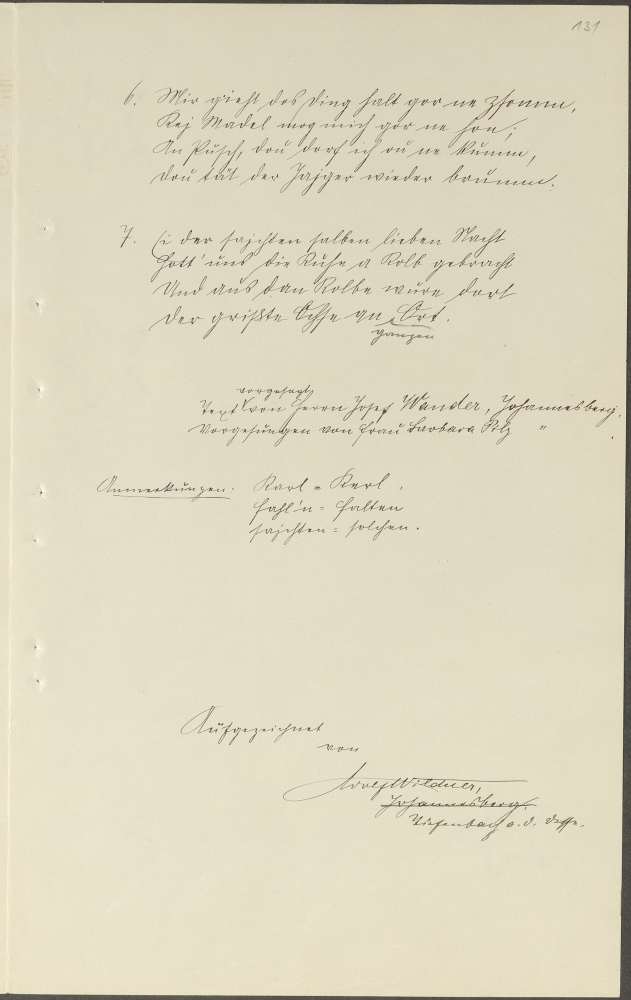 131
6. Mir gieht dos Ding halt gor ne zsomm,
Kej Madel mog mich gor ne hon;
An Püsch, dou dorf ich ou ne kumm,
dou tät der Jajger wieder brumm.
7. Ei der sajchten salben lieben Nacht
Hott' uns die Kuhe a Kolb gebracht
Und aus dan Kolbe wure dort
der grißte Ochse an Ort.
ganzen
vorgesagt
Text von Herrn Josef Wander, Johannesberg.
Vorgesungen von Frau Barbara Pilz "
Anmerkungen: Karl = Kerl.
fahl'n = falten
sajchten = solchen.
Aufgezeichnet
von
Adolf Wildner,
Johannesberg.
Tiefenbach a. d. Desse.